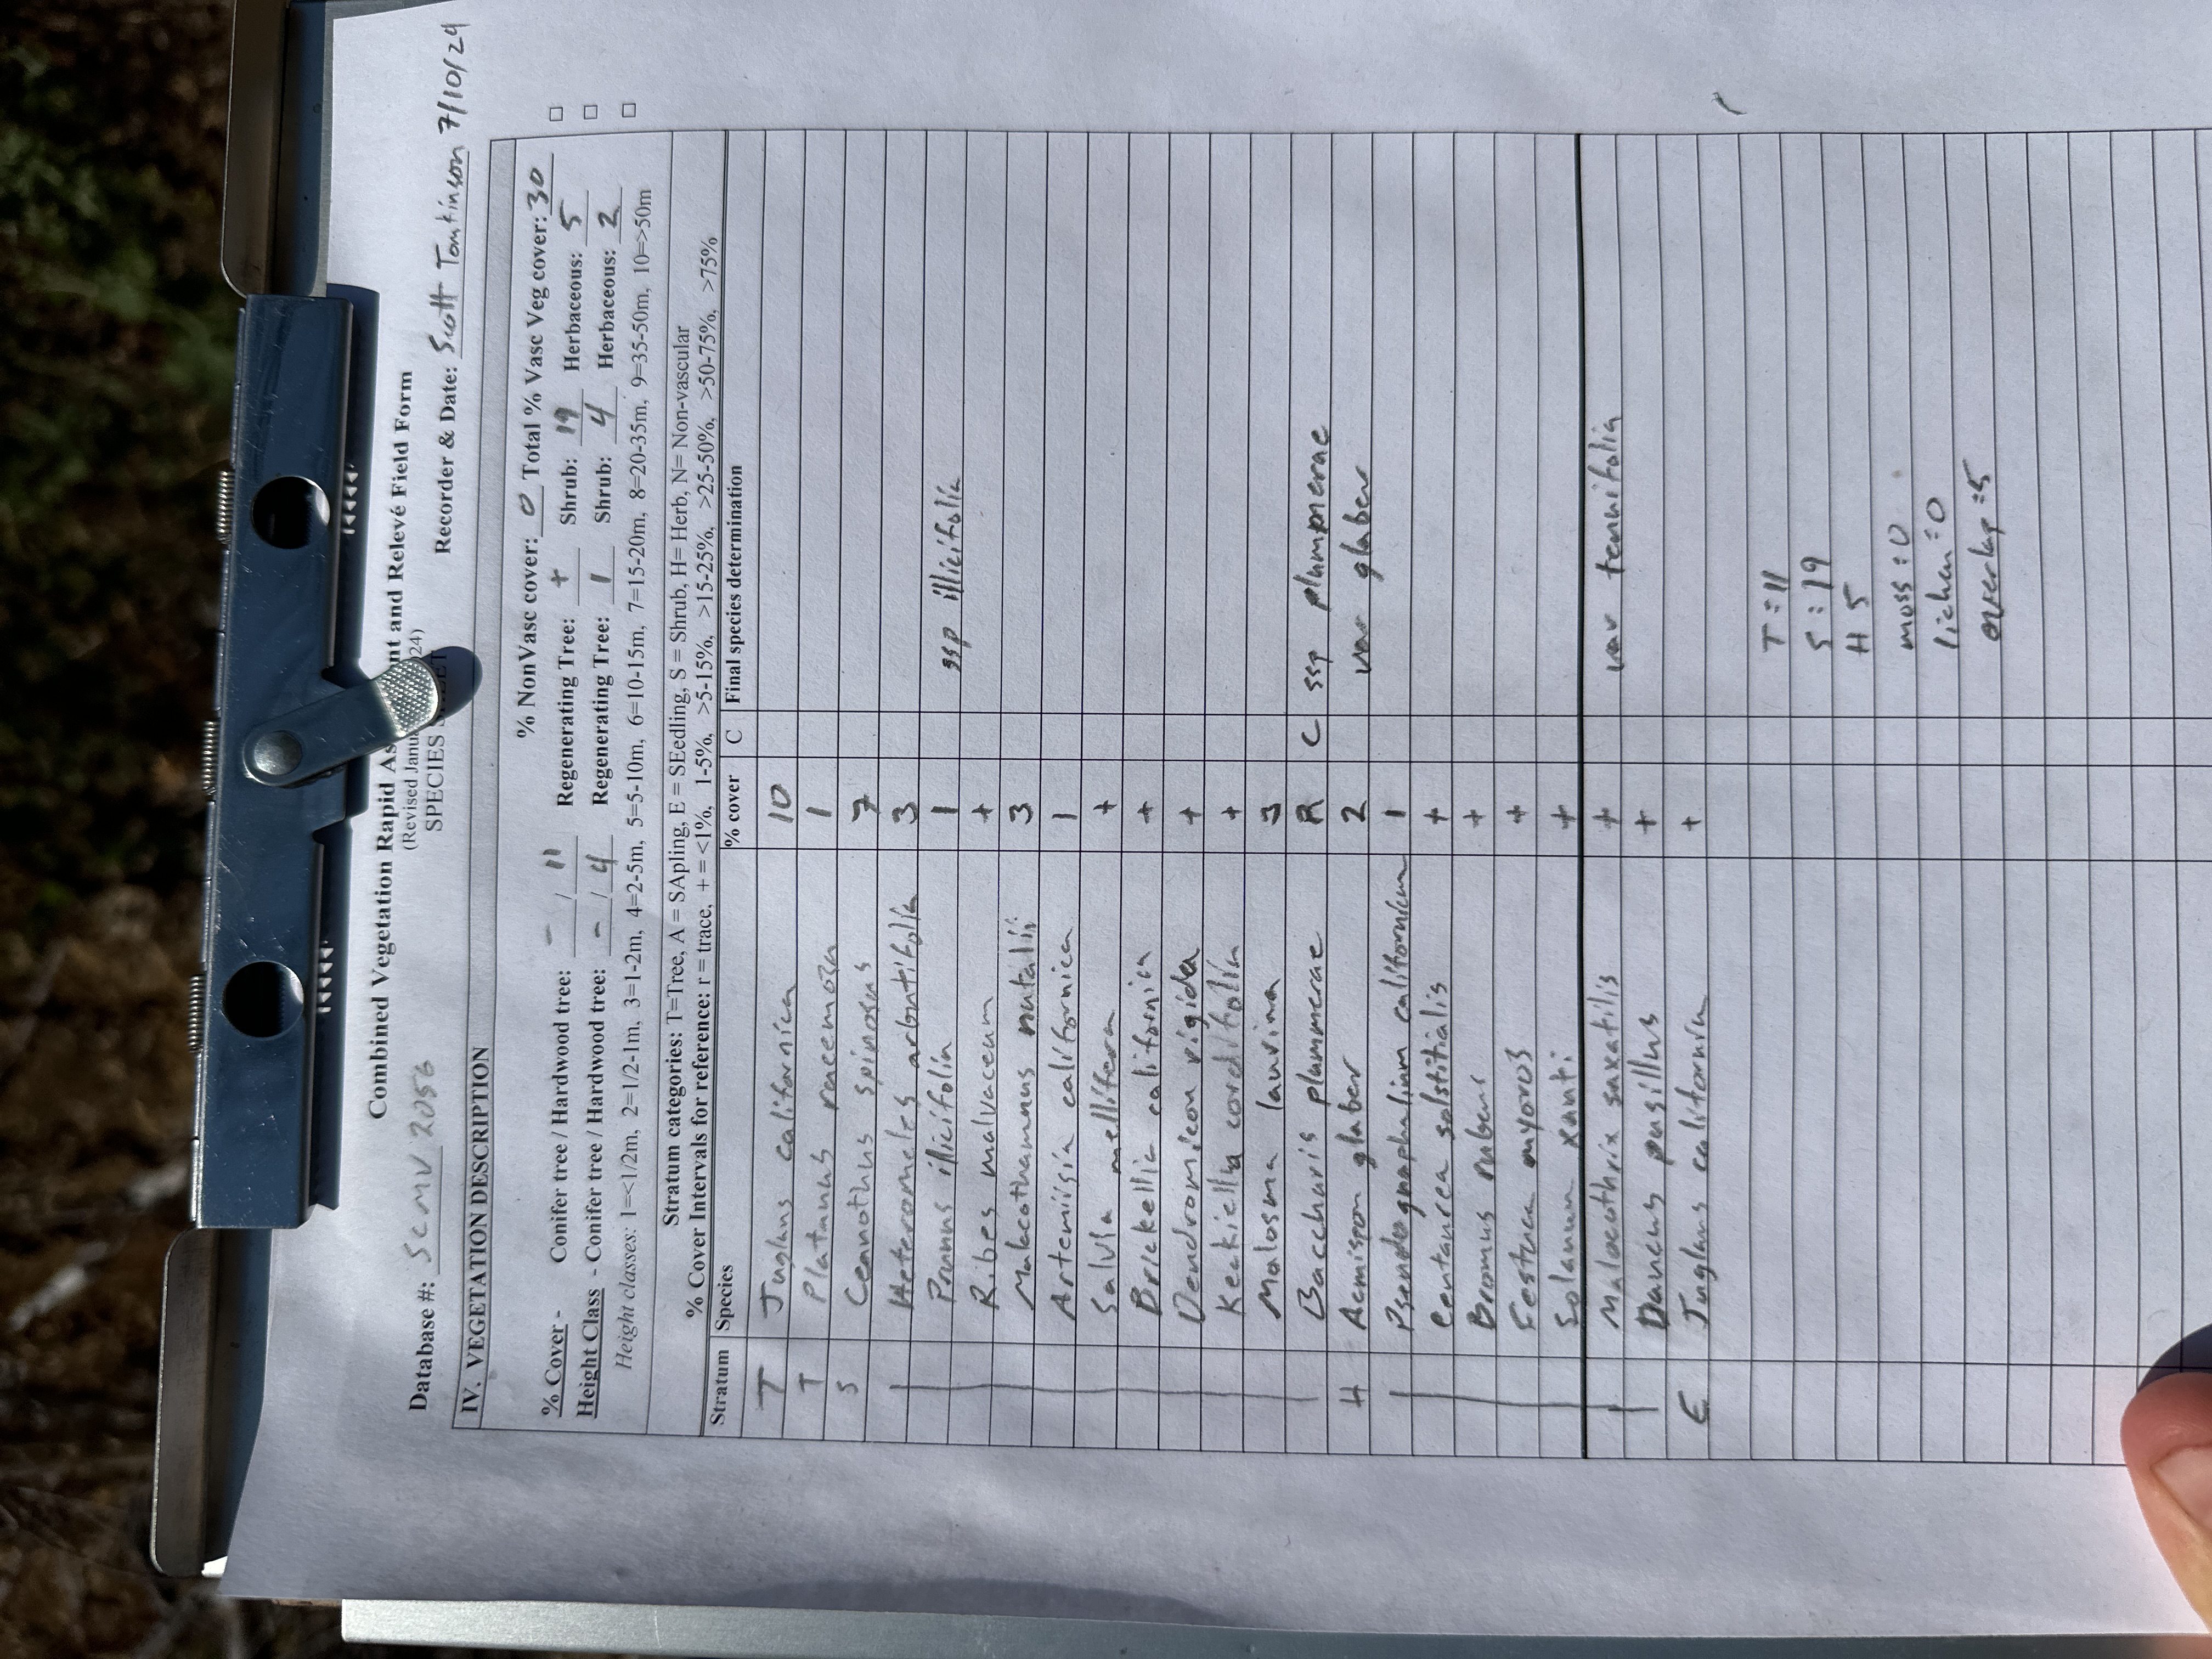 Combined Vegetation Rapid As nt and Relevé Field Form
(Revised Janu 24)
SPECIES S
Database #: SCMV 2056 Recorder & Date: Scott Tomkinson 7/10/24
IV. VEGETATION DESCRIPTION
% NonVasc cover: 0 Total % Vasc Veg cover: 30
% Cover - Conifer tree / Hardwood tree: - / 11 Regenerating Tree: + Shrub: 19 Herbaceous: 5
Height Class - Conifer tree / Hardwood tree: - / 4 Regenerating Tree: 1 Shrub: 4 Herbaceous: 2
Height classes: 1=<1/2m, 2=1/2-1m, 3=1-2m, 4=2-5m, 5=5-10m, 6=10-15m, 7=15-20m, 8=20-35m, 9=35-50m, 10=>50m
Stratum categories: T=Tree, A = SApling, E = SEedling, S = Shrub, H= Herb, N= Non-vascular
% Cover Intervals for reference: r = trace, + = <1%, 1-5%, >5-15%, >15-25%, >25-50%, >50-75%, >75%
Stratum Species % cover C Final species determination
T Juglans californica 10
T Platanus racemosa 1
S Ceanothus spinosus 7
Heteromeles arbutifolia 3
Prunus ilicifolia 1 ssp illicifolia
Ribes malvaceum +
Malacothamnus nutalii 3
Artemisia californica 1
Salvia mellifera +
Brickellia californica +
Dendromicon rigida +
Keckiella cordifolia +
Malosma laurina 3
Baccharis plummerae R C ssp plummerae
H Acmispon glaber 2 var glaber
Pseudognaphalium californicum 1
Centaurea solstitialis +
Bromus rubens +
Festuca myuros +
Solanum xanti +
Malacothrix saxatilis + var tenuifolia
Daucus pusillus +
E Juglans californica +
T = 11
S : 19
H 5
moss : 0
lichen = 0
overlap = 5